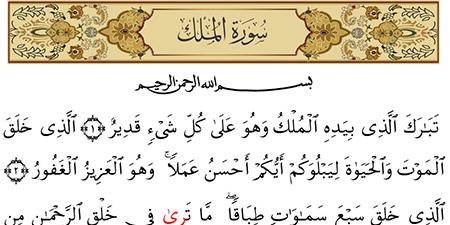 سُورَةُ الْمُلْكِ
بِسْمِ اللَّهِ الرَّحْمَٰنِ الرَّحِيمِ
تَبَارَكَ الَّذِي بِيَدِهِ الْمُلْكُ وَهُوَ عَلَىٰ كُلِّ شَيْءٍ قَدِيرٌ ﴿١﴾ الَّذِي خَلَقَ
الْمَوْتَ وَالْحَيَوٰةَ لِيَبْلُوَكُمْ أَيُّكُمْ أَحْسَنُ عَمَلًا ۚ وَهُوَ الْعَزِيزُ الْغَفُورُ ﴿٢﴾
الَّذِي خَلَقَ سَبْعَ سَمَٰوَٰتٍ طِبَاقًا ۖ مَّا تَرَىٰ فِي خَلْقِ الرَّحْمَٰنِ مِن